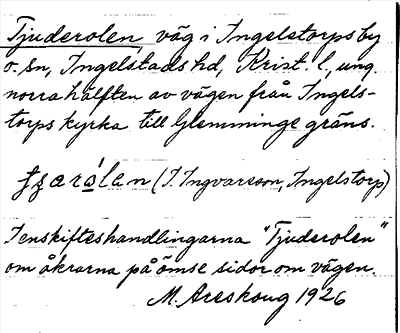 Tjuderolen, väg i Ingelstorps by
o. sn, Ingelstads hd, Krist. l., ung.
norra hälften av vägen från Ingels-
torps kyrka till Glemminge gräns.
(I. Ingvarsson, Ingelstorp)
I enskifteshandlingarna "Tjuderolen"
om åkrarna på ömse sidor om vägen.
M. Areskoug 1926